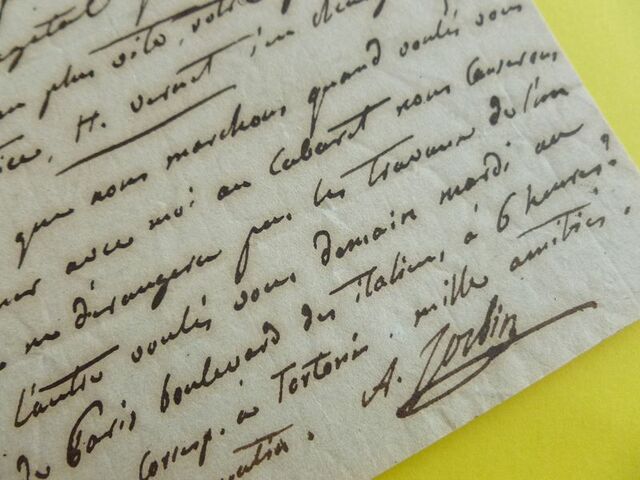 plus vite, votre
H. Vernet s'en charge
que nous marchons quand voulés vous
avec moi au Cabaret nous Causerons
ne dérangera pas les travaux de l'un
l'autre voulés vous demain mardi au
de Paris boulevard des italiens à 6 heures?
à Tortoni. mille amitiés.
A. Jorbin